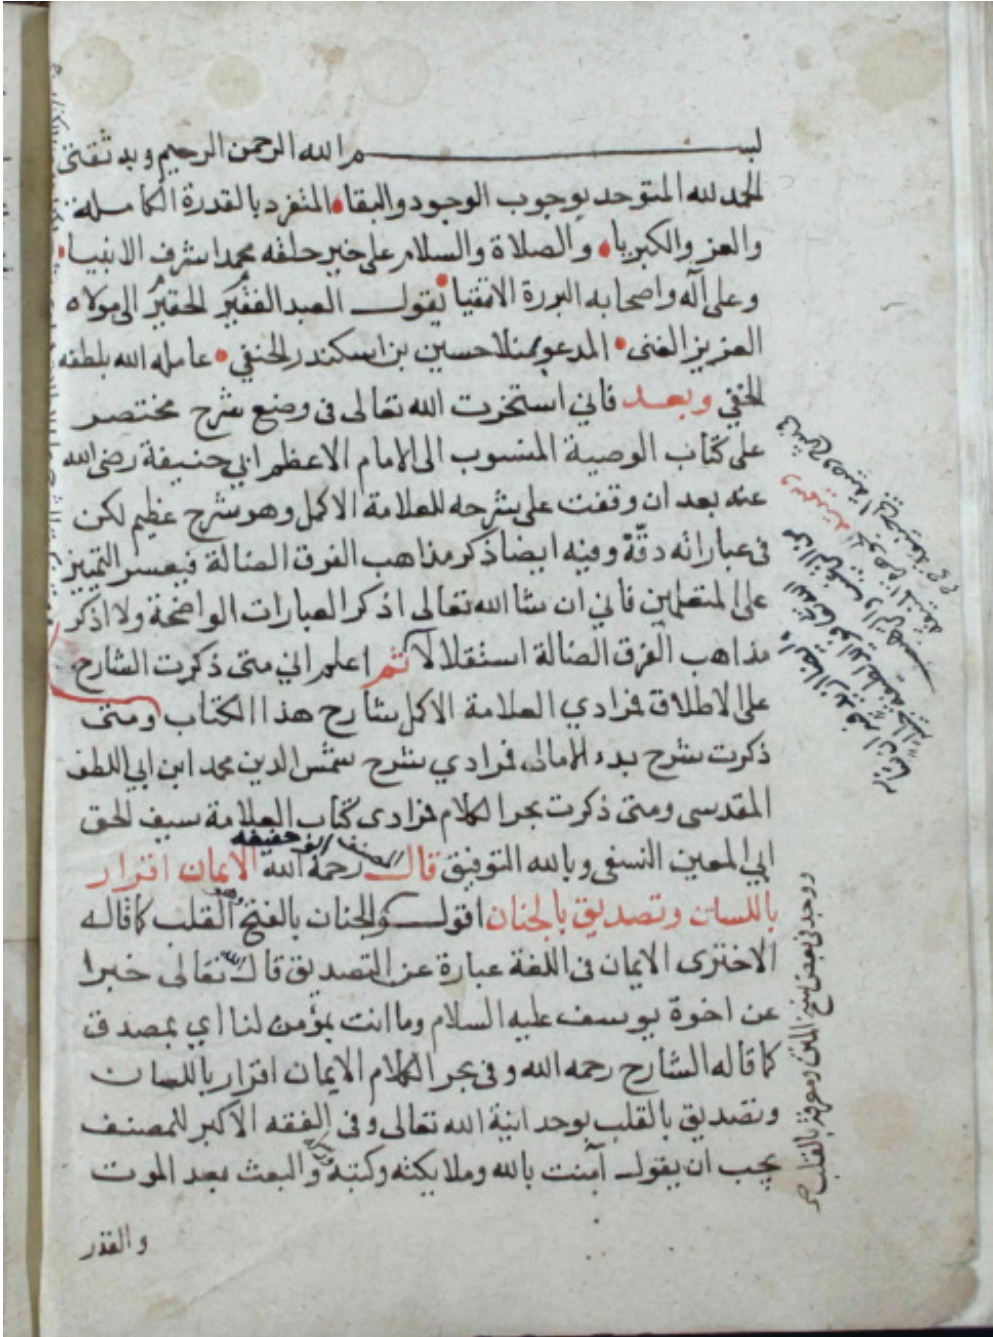 بسم الله الرحمن الرحيم وبه ثقتي
الحمد لله المتوحد بوجوب الوجود والبقا المنفرد بالقدرة الكاملة
والعز والكبريا والصلاة والسلام على خير خلقه محمد اشرف الانبيا
وعلى آله واصحابه البررة الاتقيا يقول العبد الفقير الحقير الى مولاه
العزيز الغنى المدعو بمنلا حسين بن اسكندر الحنفي عامله الله بلطفه
الخفي وبعد فاني استخرت الله تعالى فى وضع شرح مختصر
على كتاب الوصية المنسوب الى الامام الاعظم ابي حنيفة رضى الله
عنه بعد ان وقفت على شرحه للعلامة الاكمل وهو شرح عظيم لكن
فى عباراته دقة وفيه ايضا ذكر مذاهب الفرق الضالة فيعسر التمييز
على المتعلمين فاني ان شا الله تعالى اذكر العبارات الواضحة ولا اذكر
مذاهب الفرق الضالة استقلالا ثم اعلم اني متى ذكرت الشارح
على الاطلاق فمرادي العلامة الاكمل شارح هذا الكتاب ومتى
ذكرت شرح بدء الامالى فمرادي شرح شمس الدين محمد ابن ابي اللطف
المقدسى ومتى ذكرت بحر الكلام فمرادى كتاب العلامة سيف الحق
ابي المعين النسفى وبالله التوفيق قال المصنف ابو حنيفه رحمه الله الايمان اقرار
باللسان وتصديق بالجنان اقول والجنان بالفتح هو القلب كما قاله
الاخترى الايمان فى اللغة عبارة عن التصديق قال الله تعالى خبرا
عن اخوة يوسف عليه السلام وما انت بمؤمن لنا اي بمصدق
كما قاله الشارح رحمه الله وفى بحر الكلام الايمان اقرار باللسان
وتصديق بالقلب بوحدانية الله تعالى وفى الفقه الاكبر للمصنف
يجب ان يقول آمنت بالله وملايكته وكتبه ورسله والبعث بعد الموت
والقدر
ووجد في بعض نسخ المتن ومعرفة بالقلب صح